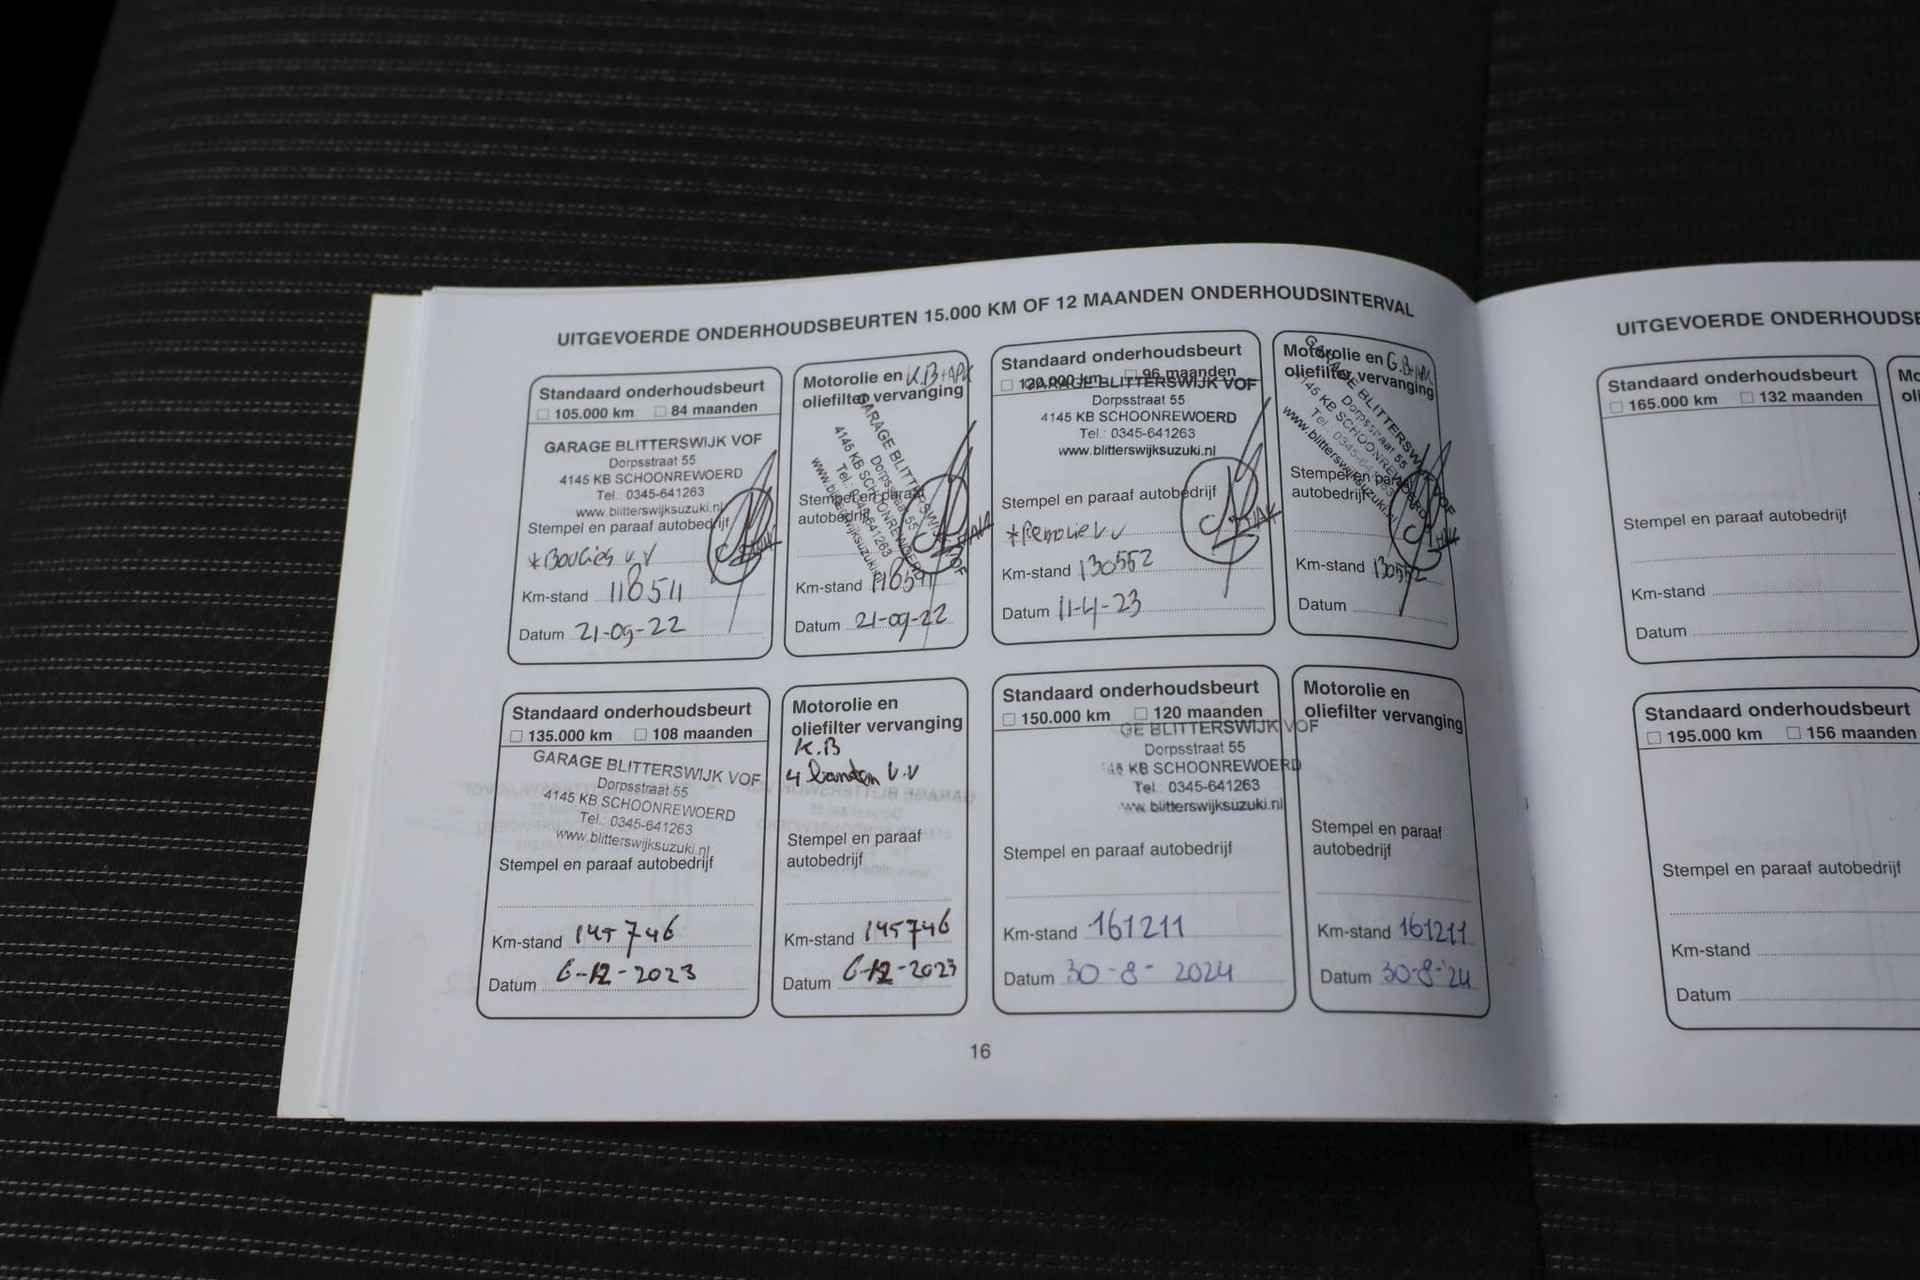 UITGEVOERDE ONDERHOUDSBEURTEN 15.000 KM OF 12 MAANDEN ONDERHOUDSINTERVAL
Standaard onderhoudsbeurt
105.000 km 84 maanden
GARAGE BLITTERSWIJK VOF
Dorpsstraat 55
4145 KB SCHOONREWOERD
Tel.: 0345-641263
www.blitterswijksuzuki.nl
Stempel en paraaf autobedrijf
*Bougies v.v
Km-stand 118511
Datum 21-09-22
Motorolie en K.B+APK
oliefilter vervanging
GARAGE BLITTERSWIJK VOF
Dorpsstraat 55
4145 KB SCHOONREWOERD
Tel.: 0345-641263
www.blitterswijksuzuki.nl
Stempel en paraaf
autobedrijf
Km-stand 118511
Datum 21-09-22
Standaard onderhoudsbeurt
120.000 km 96 maanden
GARAGE BLITTERSWIJK VOF
Dorpsstraat 55
4145 KB SCHOONREWOERD
Tel.: 0345-641263
www.blitterswijksuzuki.nl
Stempel en paraaf autobedrijf
*Remolie v.v
Km-stand 130552
Datum 11-4-23
Motorolie en G.B+APK
oliefilter vervanging
GARAGE BLITTERSWIJK VOF
Dorpsstraat 55
4145 KB SCHOONREWOERD
Tel.: 0345-641263
www.blitterswijksuzuki.nl
Stempel en paraaf
autobedrijf
Km-stand 130552
Datum
Standaard onderhoudsbeurt
135.000 km 108 maanden
GARAGE BLITTERSWIJK VOF
Dorpsstraat 55
4145 KB SCHOONREWOERD
Tel.: 0345-641263
www.blitterswijksuzuki.nl
Stempel en paraaf autobedrijf
Km-stand 145746
Datum 6-12-2023
Motorolie en
oliefilter vervanging
K.B
4 banden v.v
Stempel en paraaf
autobedrijf
Km-stand 145746
Datum 6-12-2023
Standaard onderhoudsbeurt
150.000 km 120 maanden
GE BLITTERSWIJK VOF
Dorpsstraat 55
145 KB SCHOONREWOERD
Tel.: 0345-641263
www.blitterswijksuzuki.nl
Stempel en paraaf autobedrijf
Km-stand 161211
Datum 30-8-2024
Motorolie en
oliefilter vervanging
Stempel en paraaf
autobedrijf
Km-stand 161211
Datum 30-8-'24
16
UITGEVOERDE ONDERHOUDSB
Standaard onderhoudsbeurt
165.000 km 132 maanden
Stempel en paraaf autobedrijf
Km-stand
Datum
Mo
oli
Standaard onderhoudsbeurt
195.000 km 156 maanden
Stempel en paraaf autobedrijf
Km-stand
Datum